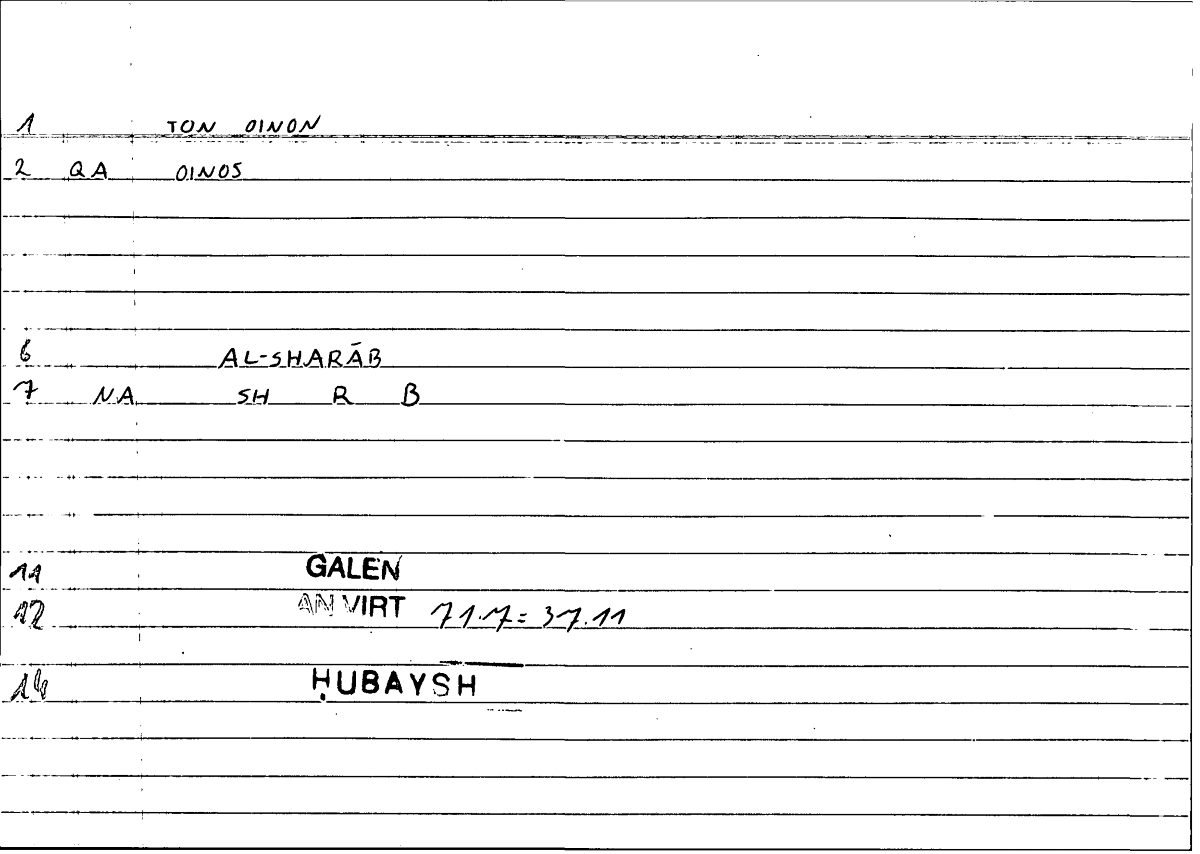 1 TON OINON
2 QA OINOS
6 AL-SHARĀB
7 NA SH R B
11 GALEN
12 AN VIRT 71.7 = 37.11
14 ḤUBAYSH